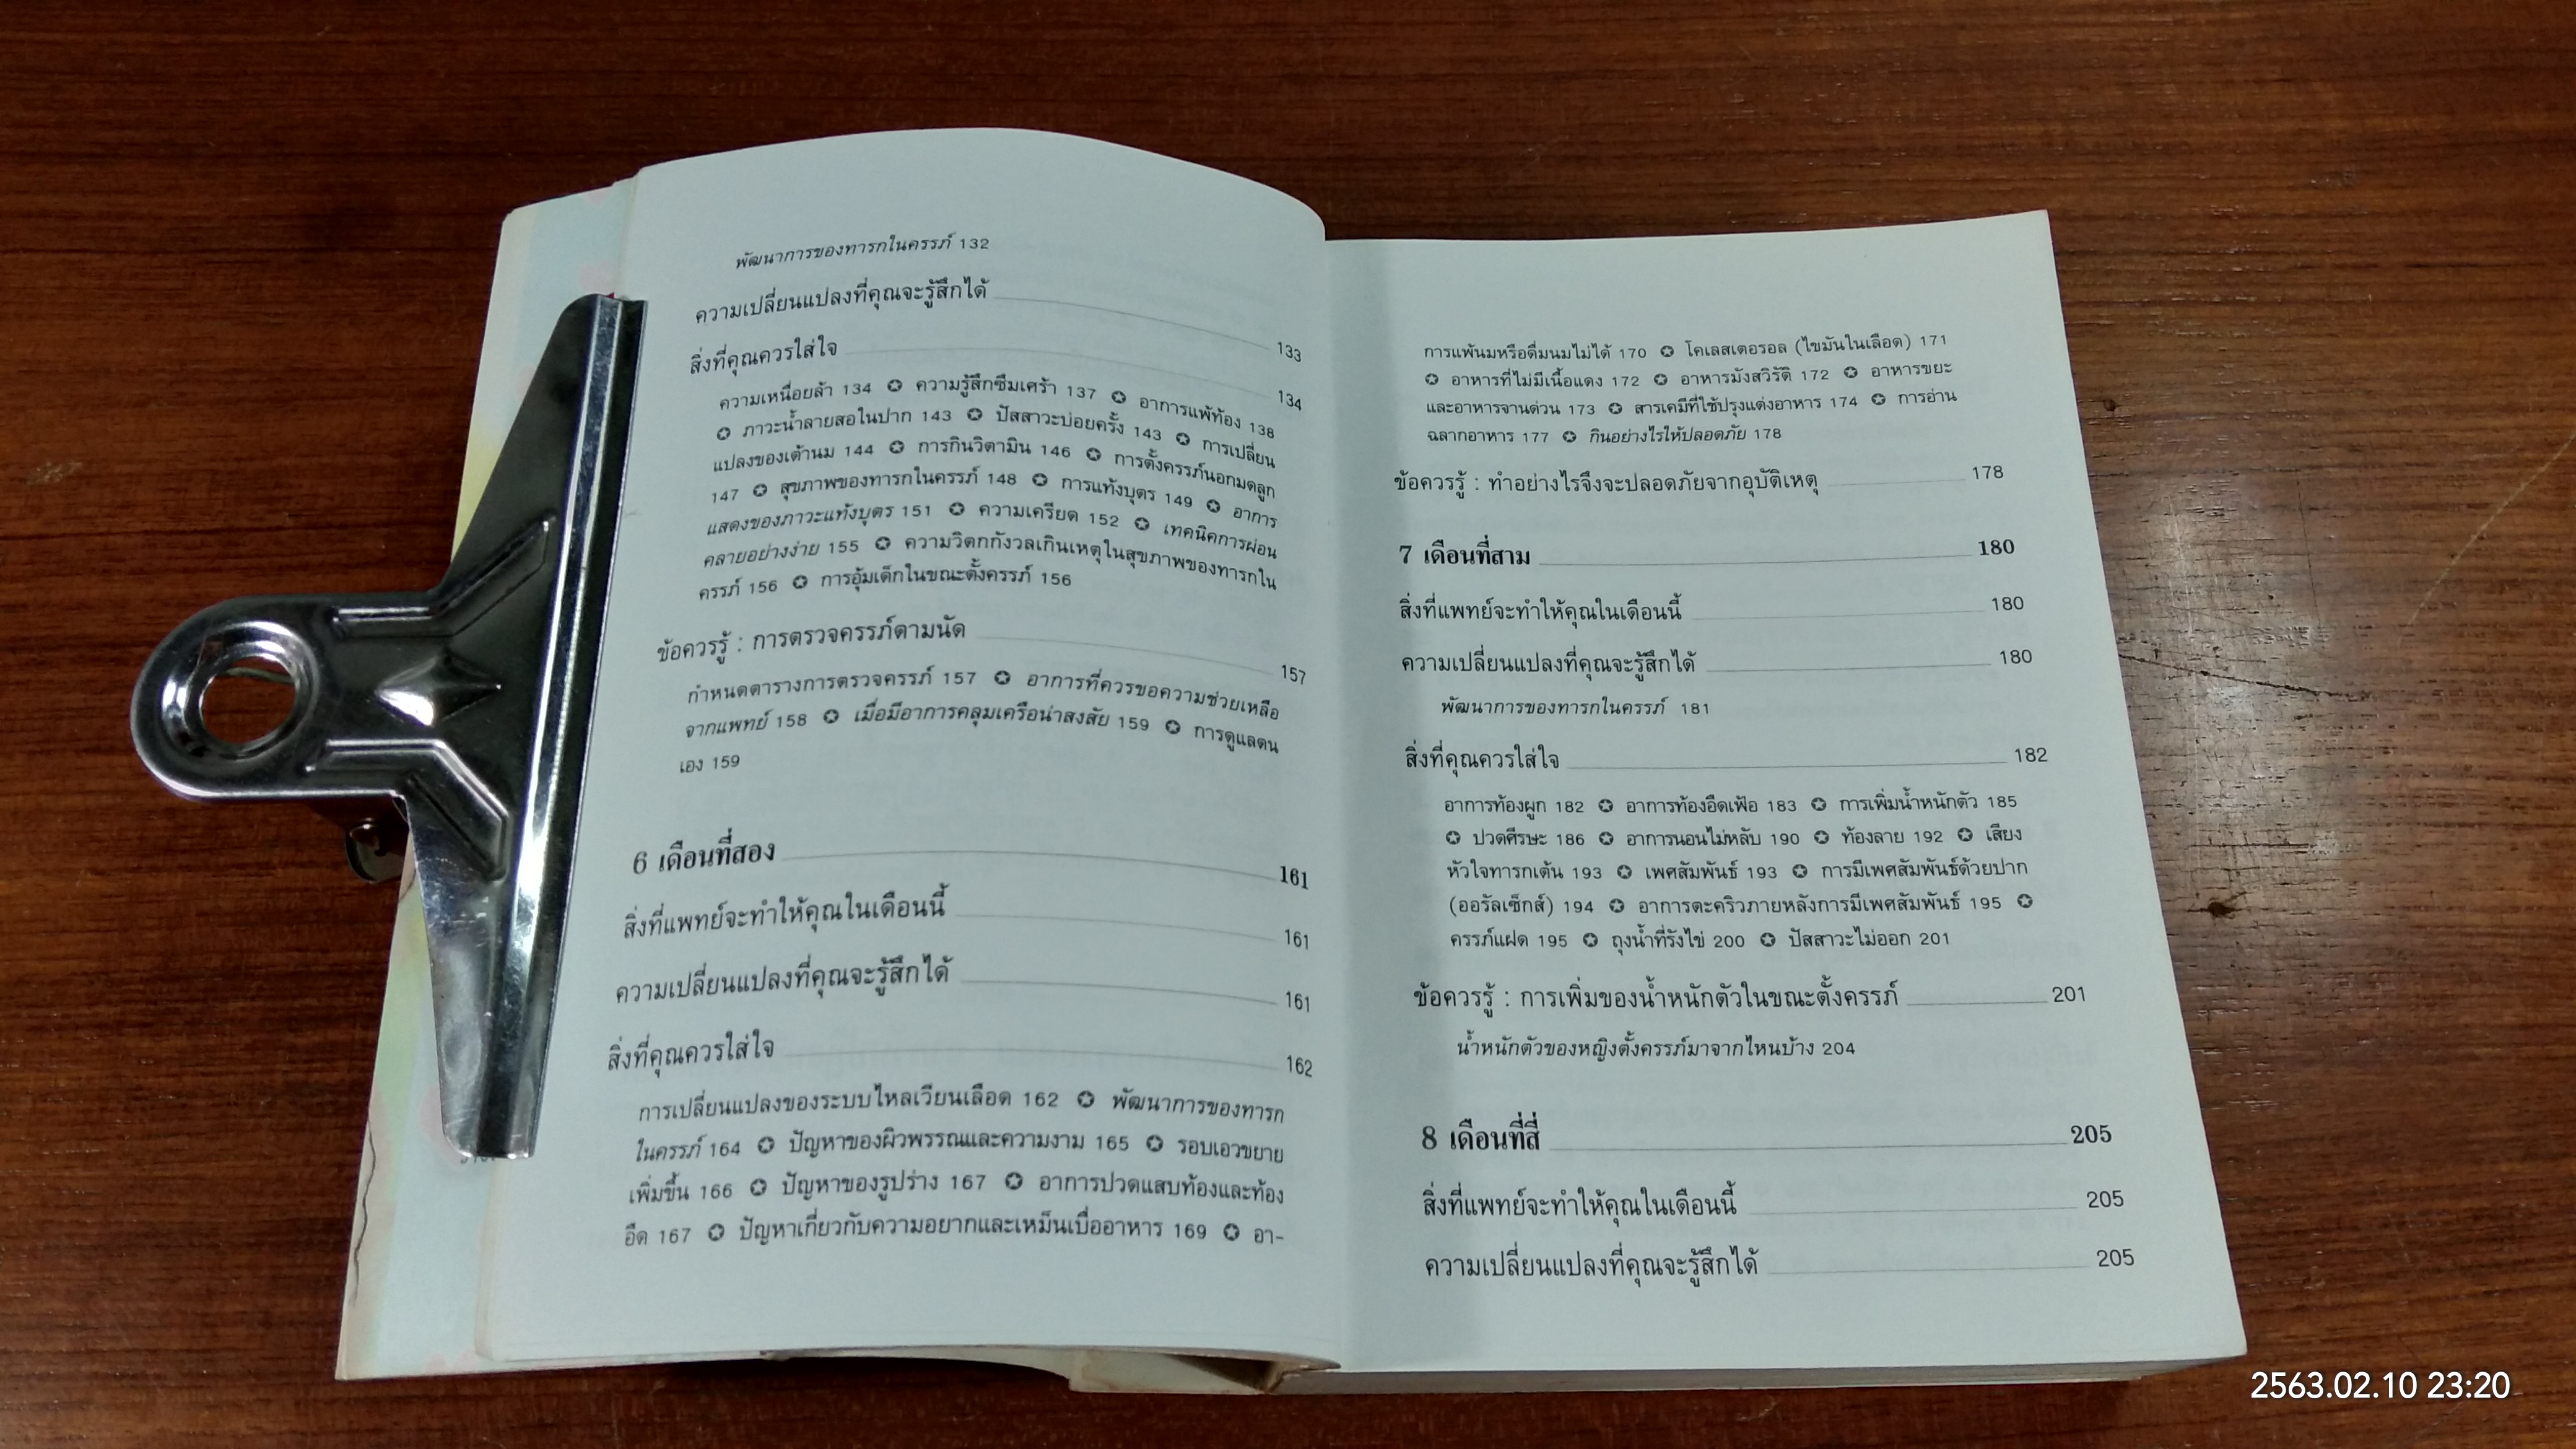 พัฒนาการของทารกในครรภ์ 132
ความเปลี่ยนแปลงที่คุณจะรู้สึกได้ 133
สิ่งที่คุณควรใส่ใจ 134
ความเหนื่อยล้า 134 ✪ ความรู้สึกซึมเศร้า 137 ✪ อาการแพ้ท้อง 138
✪ ภาวะน้ำลายสอในปาก 143 ✪ ปัสสาวะบ่อยครั้ง 143 ✪ การเปลี่ยน
แปลงของเต้านม 144 ✪ การกินวิตามิน 146 ✪ การตั้งครรภ์นอกมดลูก
147 ✪ สุขภาพของทารกในครรภ์ 148 ✪ การแท้งบุตร 149 ✪ อาการ
แสดงของภาวะแท้งบุตร 151 ✪ ความเครียด 152 ✪ เทคนิคการผ่อน
คลายอย่างง่าย 155 ✪ ความวิตกกังวลเกินเหตุในสุขภาพของทารกใน
ครรภ์ 156 ✪ การอุ้มเด็กในขณะตั้งครรภ์ 156
ข้อควรรู้ : การตรวจครรภ์ตามนัด 157
กำหนดตารางการตรวจครรภ์ 157 ✪ อาการที่ควรขอความช่วยเหลือ
จากแพทย์ 158 ✪ เมื่อมีอาการคลุมเครือน่าสงสัย 159 ✪ การดูแลตน
เอง 159
6 เดือนที่สอง 161
สิ่งที่แพทย์จะทำให้คุณในเดือนนี้ 161
ความเปลี่ยนแปลงที่คุณจะรู้สึกได้ 161
สิ่งที่คุณควรใส่ใจ 162
การเปลี่ยนแปลงของระบบไหลเวียนเลือด 162 ✪ พัฒนาการของทารก
ในครรภ์ 164 ✪ ปัญหาของผิวพรรณและความงาม 165 ✪ รอบเอวขยาย
เพิ่มขึ้น 166 ✪ ปัญหาของรูปร่าง 167 ✪ อาการปวดแสบท้องและท้อง
อืด 167 ✪ ปัญหาเกี่ยวกับความอยากและเหม็นเบื่ออาหาร 169 ✪ อา-
การแพ้นมหรือดื่มนมไม่ได้ 170 ✪ โคเลสเตอรอล (ไขมันในเลือด) 171
✪ อาหารที่ไม่มีเนื้อแดง 172 ✪ อาหารมังสวิรัติ 172 ✪ อาหารขยะ
และอาหารจานด่วน 173 ✪ สารเคมีที่ใช้ปรุงแต่งอาหาร 174 ✪ การอ่าน
ฉลากอาหาร 177 ✪ กินอย่างไรให้ปลอดภัย 178
ข้อควรรู้ : ทำอย่างไรจึงจะปลอดภัยจากอุบัติเหตุ 178
7 เดือนที่สาม 180
สิ่งที่แพทย์จะทำให้คุณในเดือนนี้ 180
ความเปลี่ยนแปลงที่คุณจะรู้สึกได้ 180
พัฒนาการของทารกในครรภ์ 181
สิ่งที่คุณควรใส่ใจ 182
อาการท้องผูก 182 ✪ อาการท้องอืดเฟ้อ 183 ✪ การเพิ่มน้ำหนักตัว 185
✪ ปวดศีรษะ 186 ✪ อาการนอนไม่หลับ 190 ✪ ท้องลาย 192 ✪ เสียง
หัวใจทารกเต้น 193 ✪ เพศสัมพันธ์ 193 ✪ การมีเพศสัมพันธ์ด้วยปาก
(ออรัลเซ็กส์) 194 ✪ อาการตะคริวภายหลังการมีเพศสัมพันธ์ 195 ✪
ครรภ์แฝด 195 ✪ ถุงน้ำที่รังไข่ 200 ✪ ปัสสาวะไม่ออก 201
ข้อควรรู้ : การเพิ่มของน้ำหนักตัวในขณะตั้งครรภ์ 201
น้ำหนักตัวของหญิงตั้งครรภ์มาจากไหนบ้าง 204
8 เดือนที่สี่ 205
สิ่งที่แพทย์จะทำให้คุณในเดือนนี้ 205
ความเปลี่ยนแปลงที่คุณจะรู้สึกได้ 205
2563.02.10 23:20